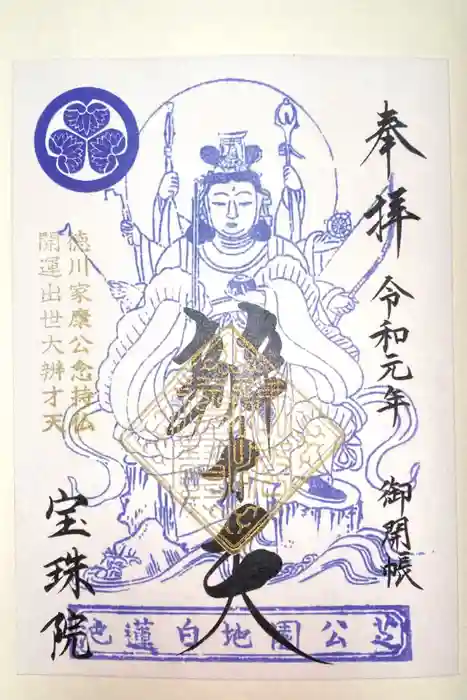 奉拝 令和元年 御開帳
辨才天
徳川家康公念持仏
開運出世大辨才天
宝珠院
芝公園地白蓮池